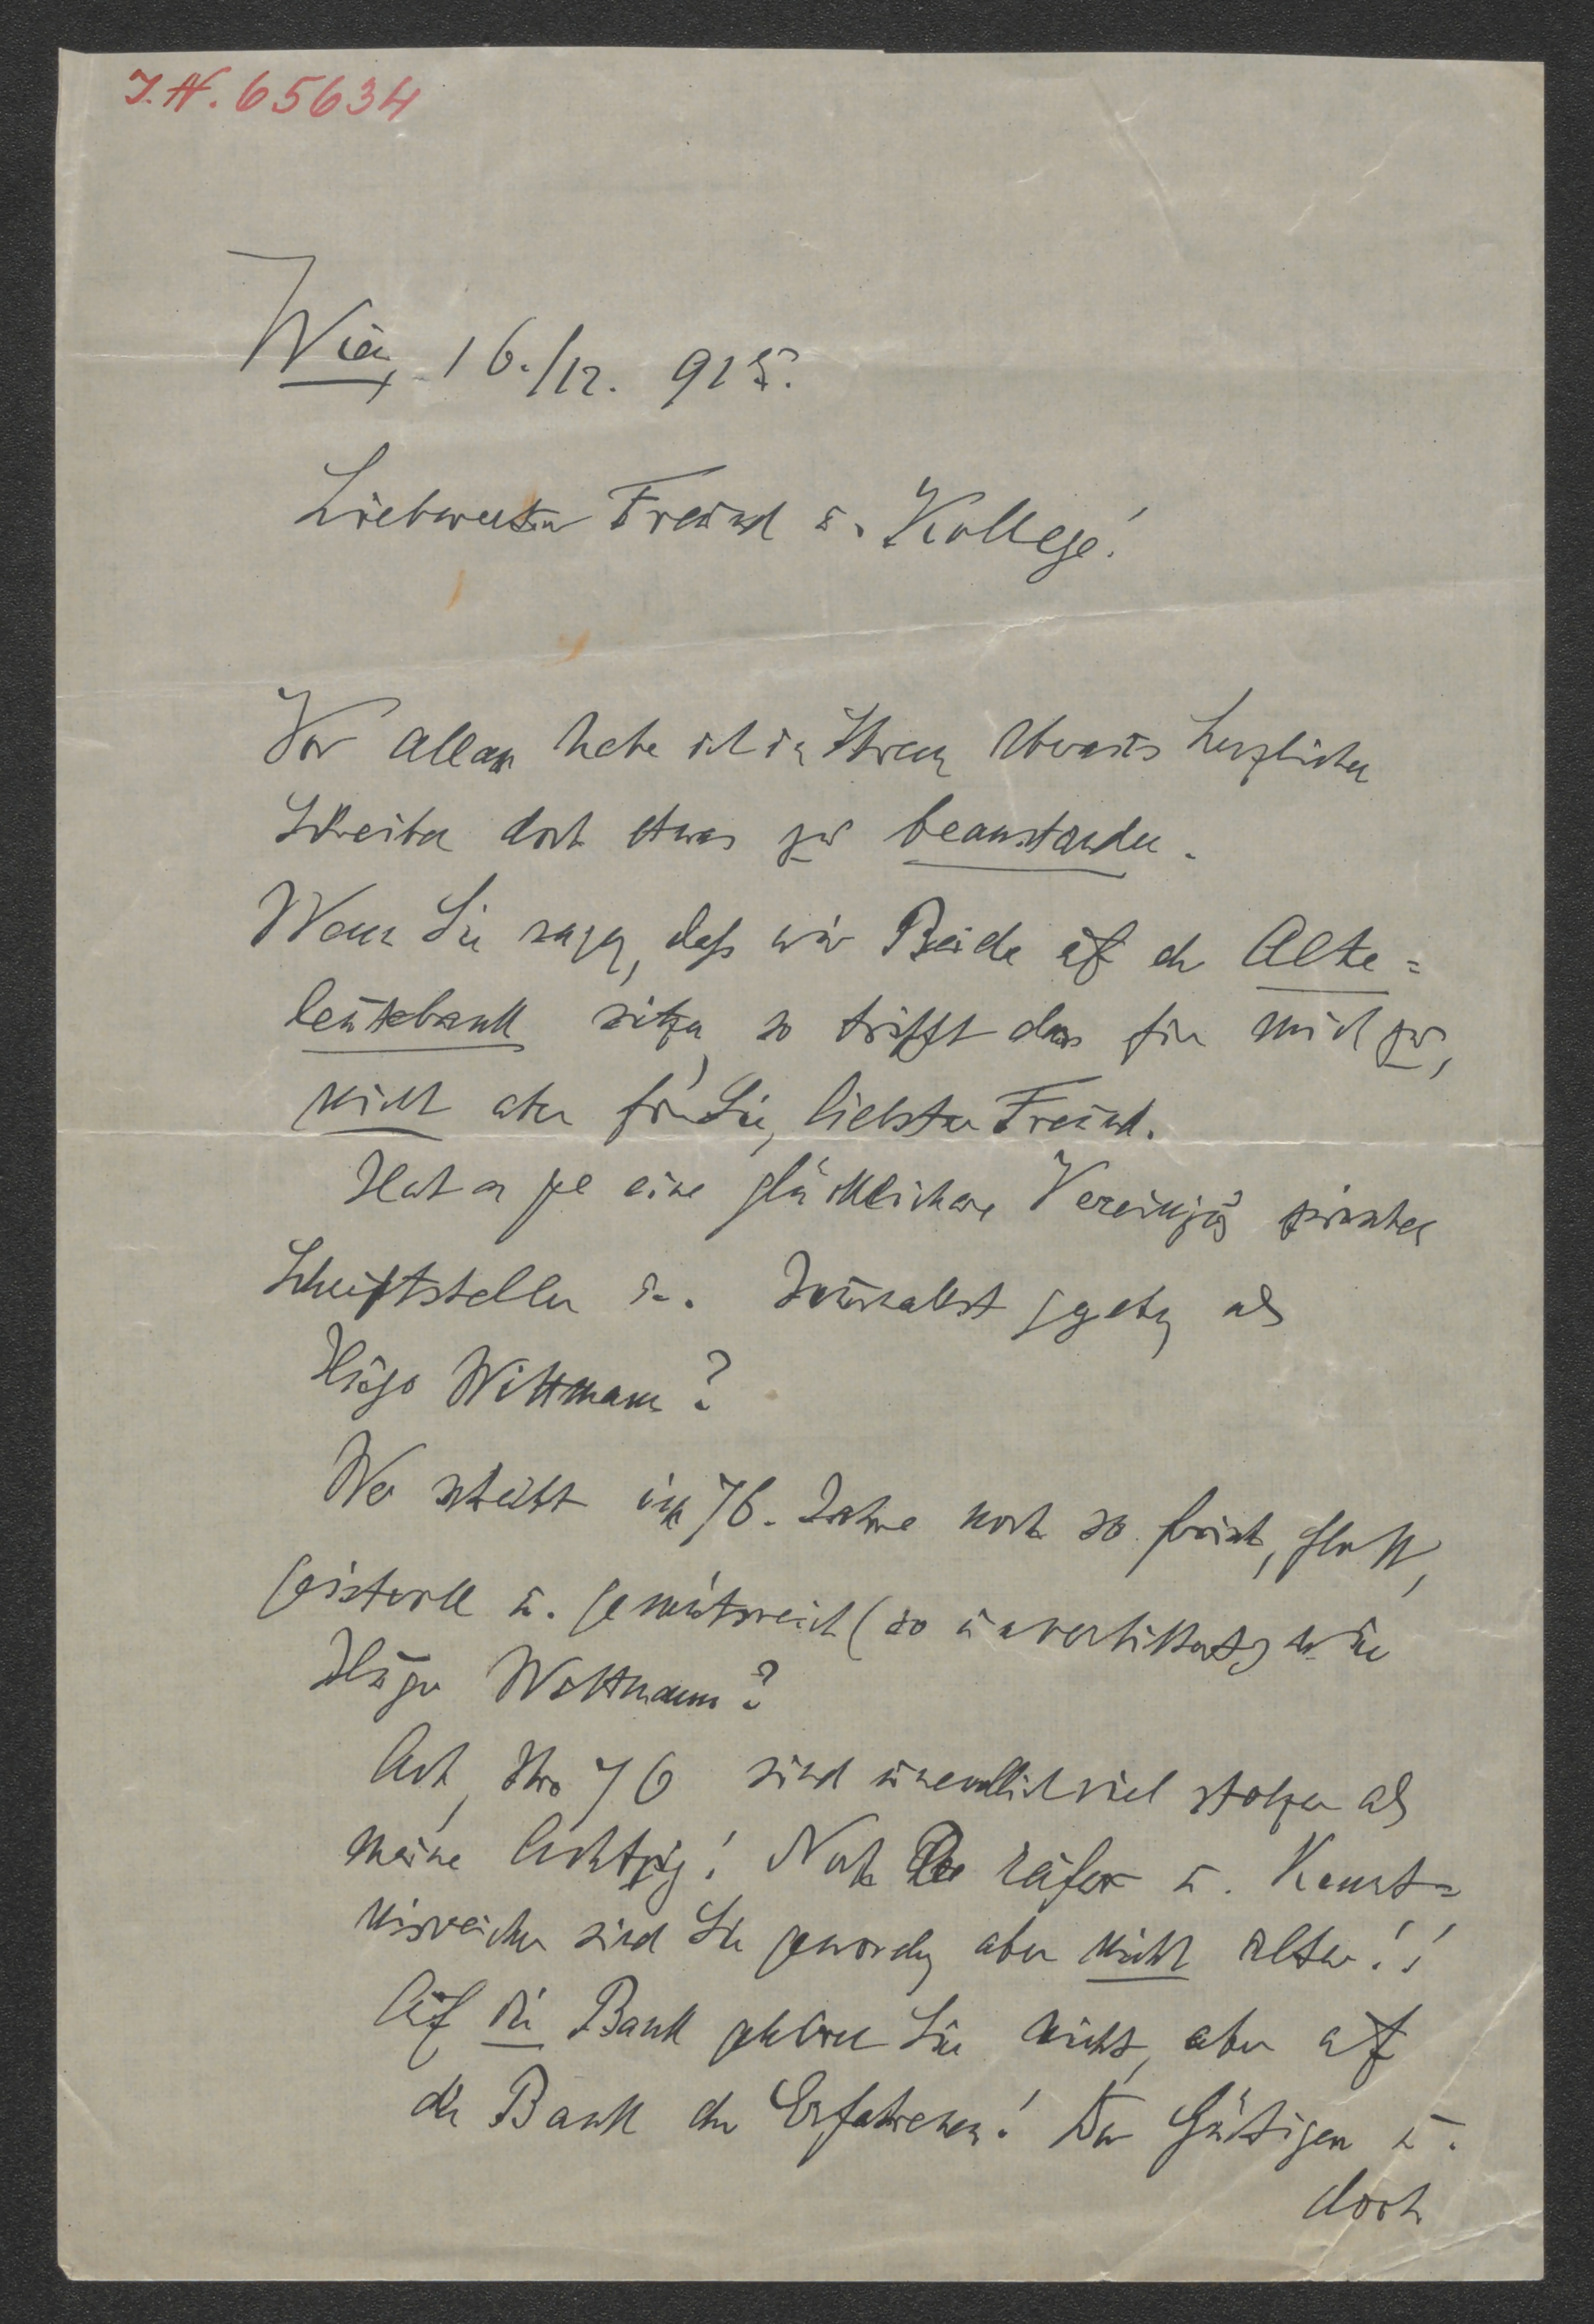 J.N. 65634
Wien, 16./12. 915.
Liebwerter Freund u. Kollege!
Vor allem habe ich in Ihrem überaus herzlichen
Schreiben doch etwas zu beanstanden.
Wenn Sie sagen, daß wir Beide auf der Alte=
leutebank sitzen, so trifft das für mich zu,
nicht aber für Sie, liebster Freund.
Hat es je eine glücklichere Vereinigung zwischen
Schriftsteller u. Journalist gegeben als
Hugo Wittmann?
Wer schreibt im 76. Jahre noch so frisch, flott,
geistvoll u. gemütsreich (so unverbittert) wie
Hugo Wittmann?
Ach, Ihre 76 sind unendlich viel stolzer als
meine Achtzig! Noch reifer u. Kennt=
nisreicher sind Sie geworden aber nicht älter!!
Auf die Bank gehören Sie nicht, aber auf
die Bank der Erfahrenen! Der Gütigen u.
doch